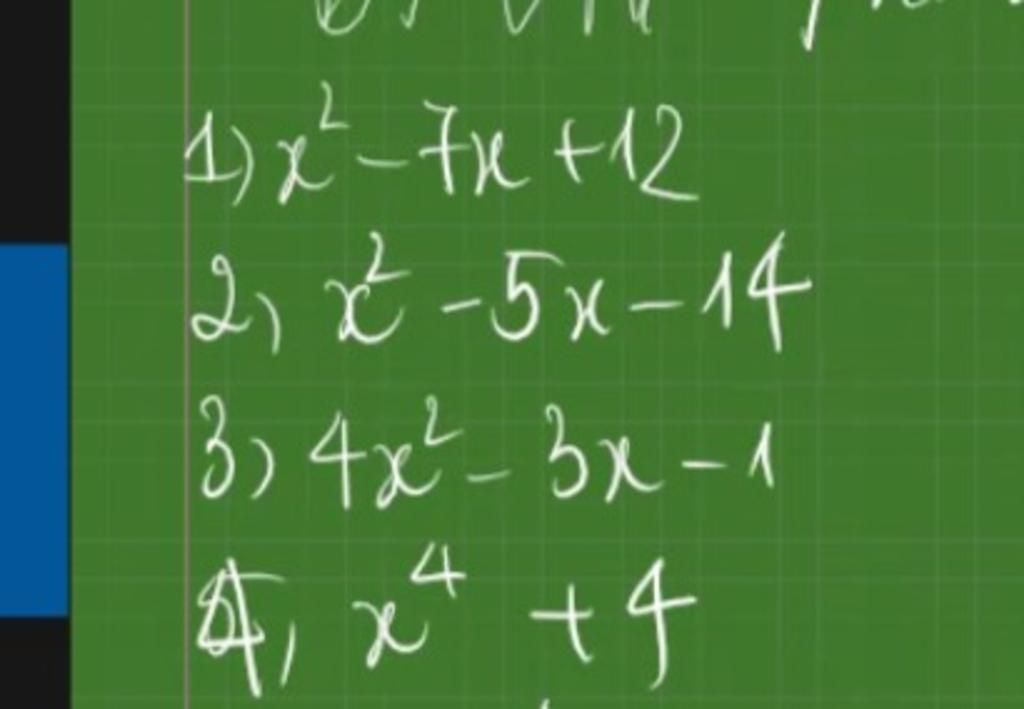 1) x² - 7x + 12
2) x² - 5x - 14
3) 4x² - 3x - 1
4) x⁴ + 4